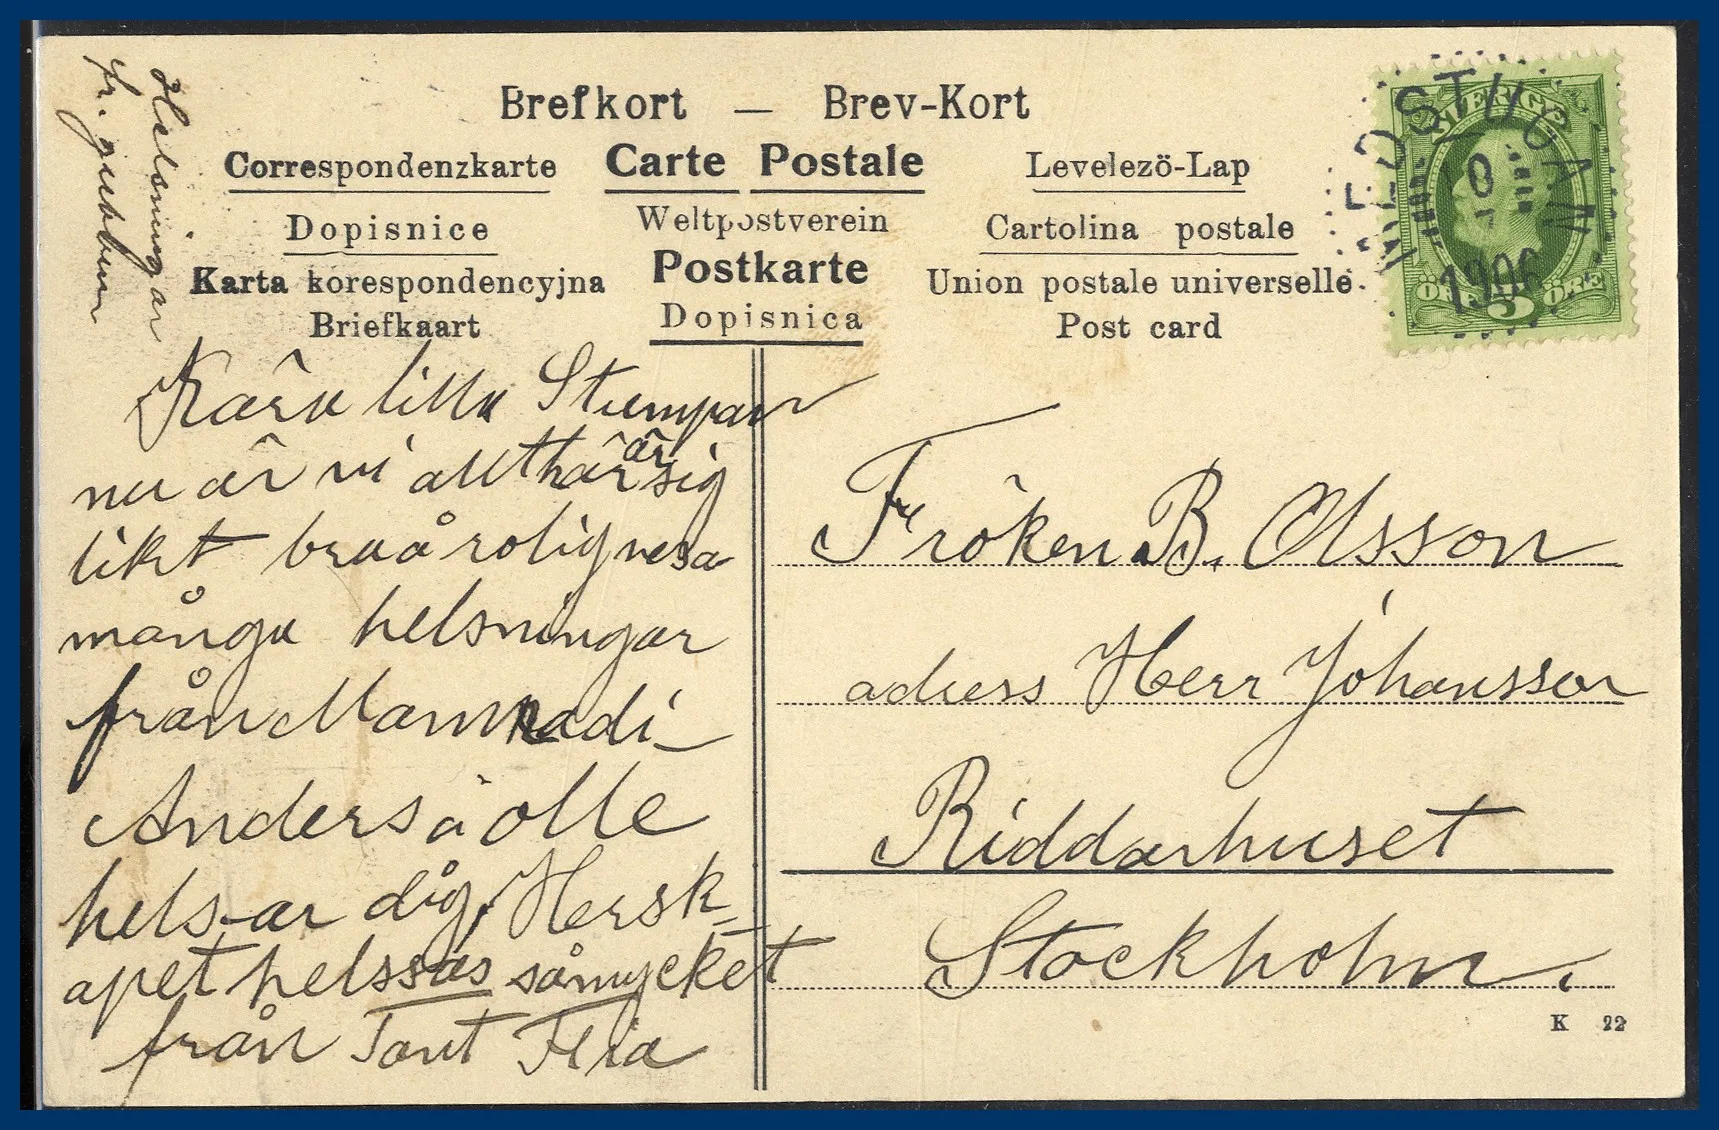 Brefkort — Brev-Kort
Correspondenzkarte Carte Postale Levelezö-Lap
Dopisnice Weltpostverein Cartolina postale
Karta korespondencyjna Postkarte Union postale universelle.
Briefkaart Dopisnica Post card
SVERIGE
5
ÖRE ÖRE
MEDSTUGAN
1906
Helsningar
fr. gubben
Kära lilla Stumpan
nu är vi allt här är sig
likt bra å rolig
många helsningar
från Mamma di
Anders å olle
helsar dig, Hersk-
apet helssas såmycket
från Tant Fia
Fröken B. Olsson
adress Herr Johansson
Riddarhuset
Stockholm.
K 22